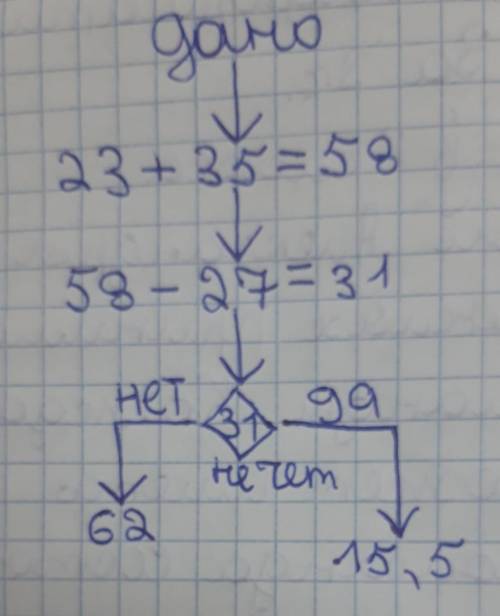 дано
23 + 35 = 58
58 - 27 = 31
нет 31 да
нечет
62
15,5